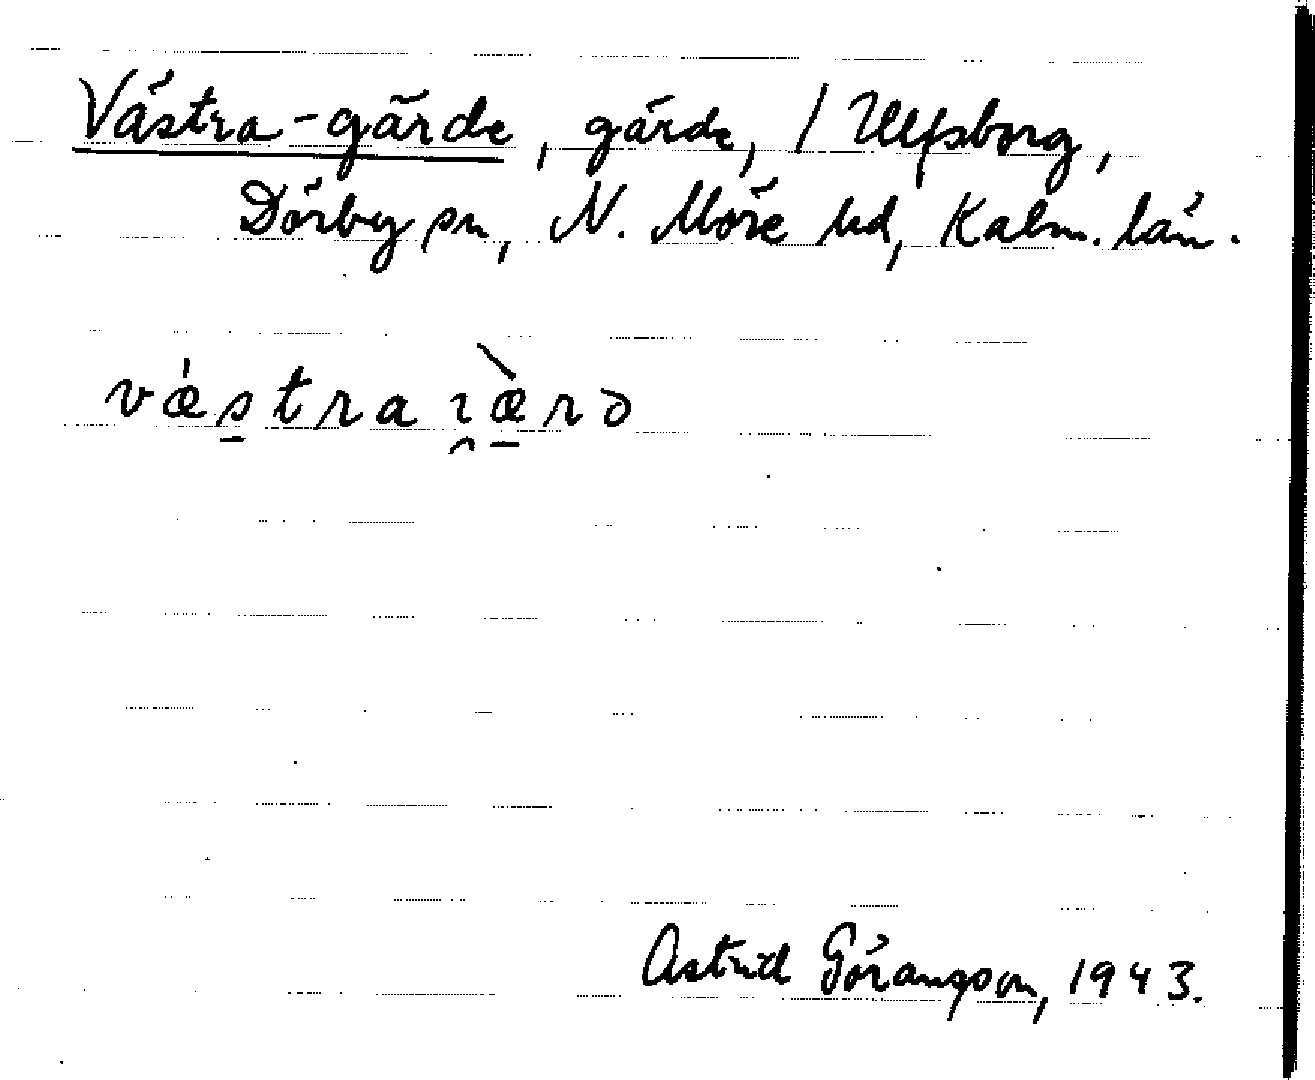 Västra-gärde, gärde, / Ulfsborg,
Dörby sn, N. Möre hd, Kalm. län.
væstraıærə
Astrid Göransson, 1943.